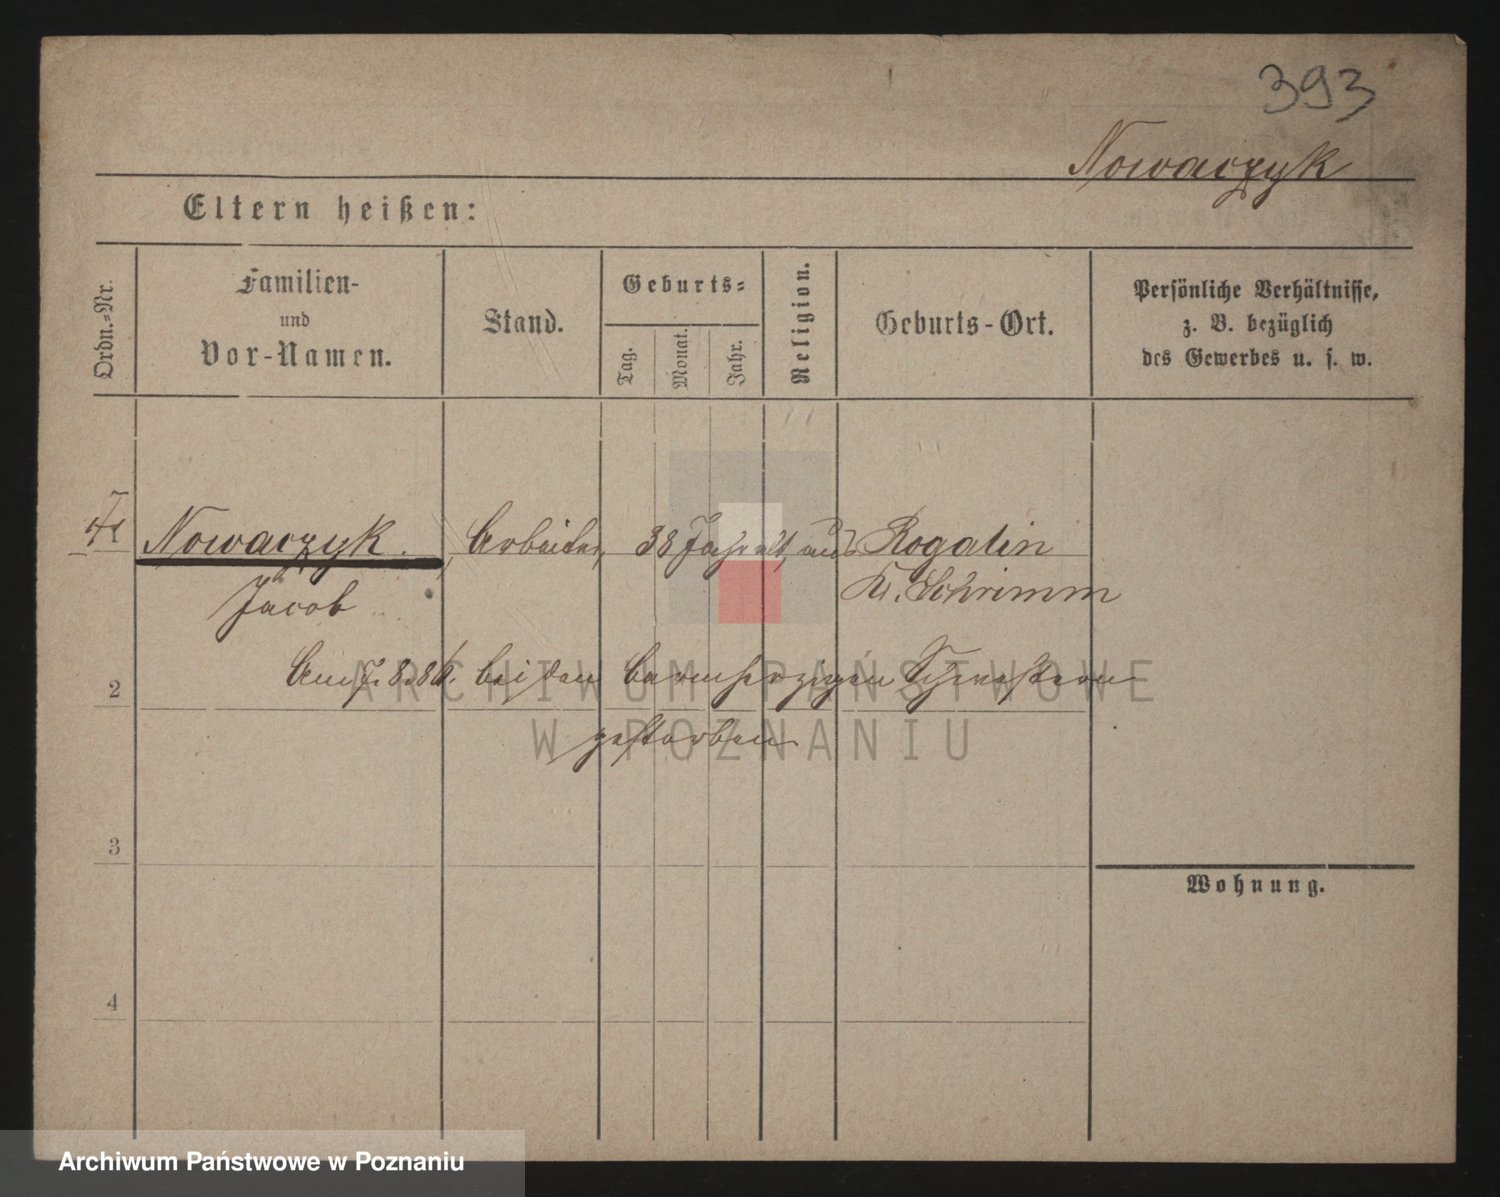 393
Nowaczyk
Eltern heißen:
Ordn.-Nr.
Familien-
und
Vor-Namen.
Stand.
Geburts-
Tag.
Monat.
Jahr.
Religion.
Geburts-Ort.
Persönliche Verhältnisse,
z. B. bezüglich
des Gewerbes u. s. w.
1 Nowaczyk. Arbeiter, 38 Jahr alt, aus Rogalin
Jacob Kr. Schrimm
2 Am 7.8.86. bei den barmherzigen Schwestern
gestorben
3
4
Wohnung.
ARCHIWUM PAŃSTWOWE
W POZNANIU
Archiwum Państwowe w Poznaniu